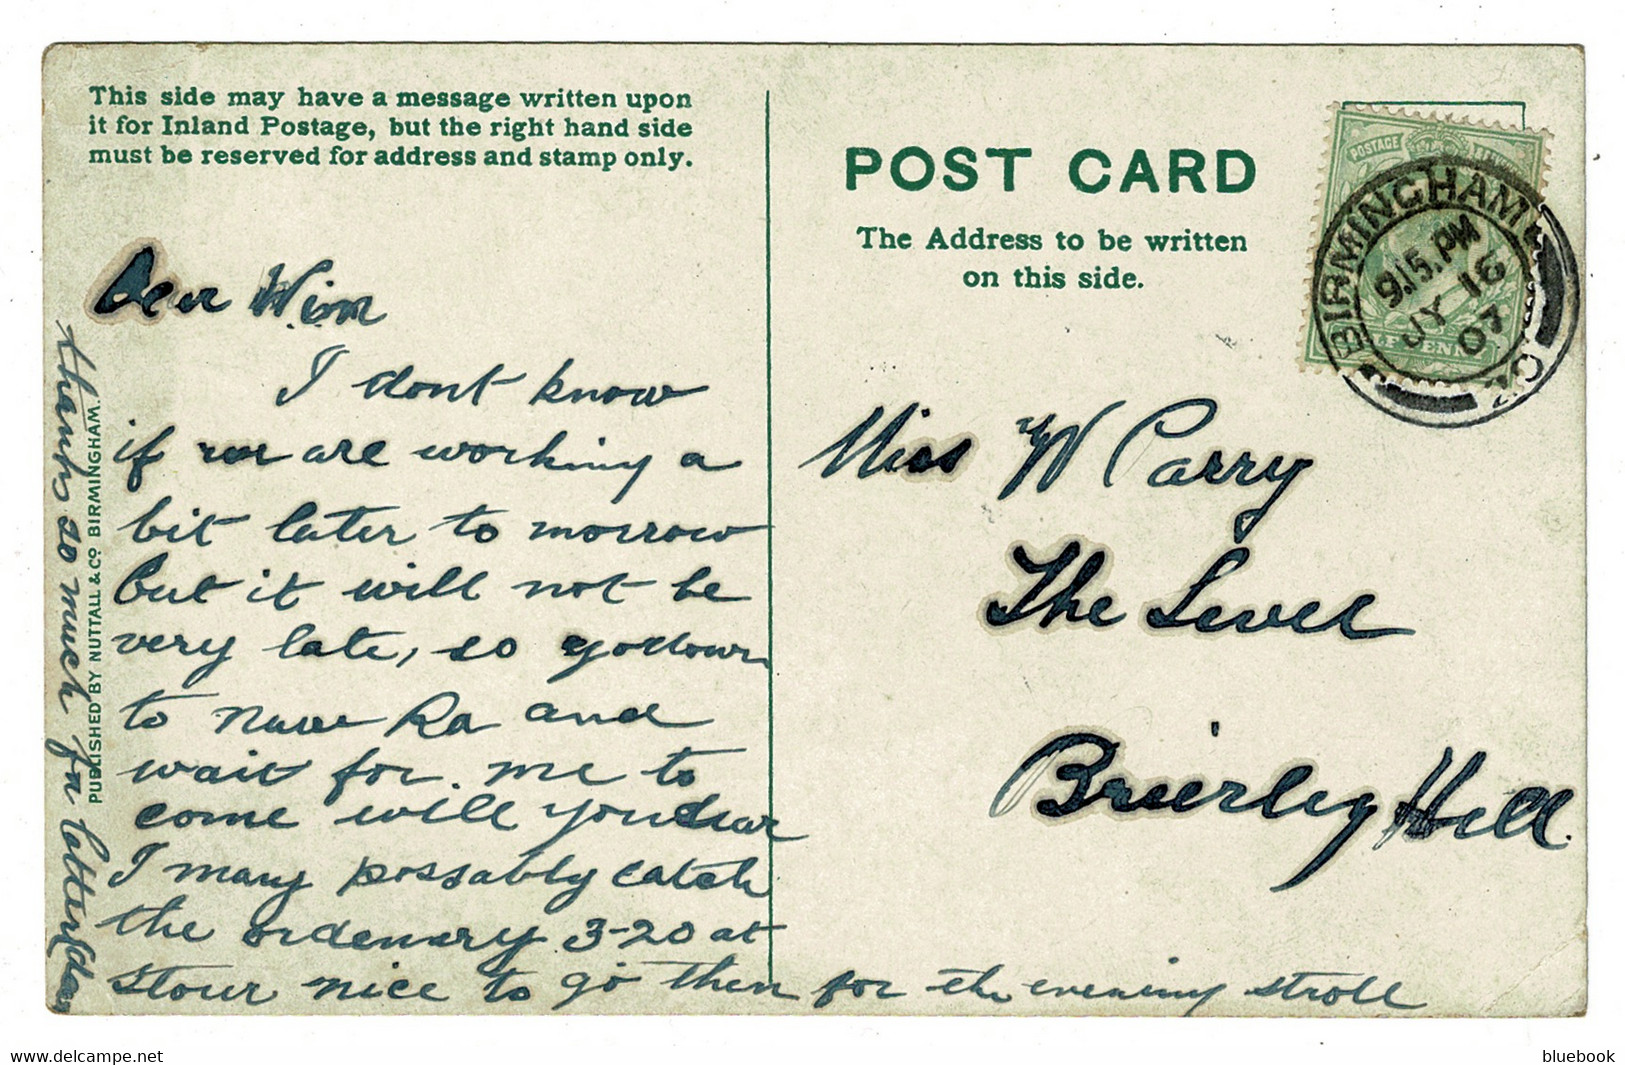 This side may have a message written upon
it for Inland Postage, but the right hand side
must be reserved for address and stamp only.
POST CARD
The Address to be written
on this side.
POSTAGE
BIRMINGHAM
9.15.PM
JY 16
07
Dear Win
I dont know
if are working a
bit later to morrow
but it will not be
very late, so go down
to and
wait for me to
come will you dear
I many possably catch
the ordenary 3-20 at
Stour nice to go then for the evening stroll
thanks so much for letter
PUBLISHED BY NUTTALL & Co BIRMINGHAM.
Miss W Parry
The Level
Brierley Hill.
bluebook